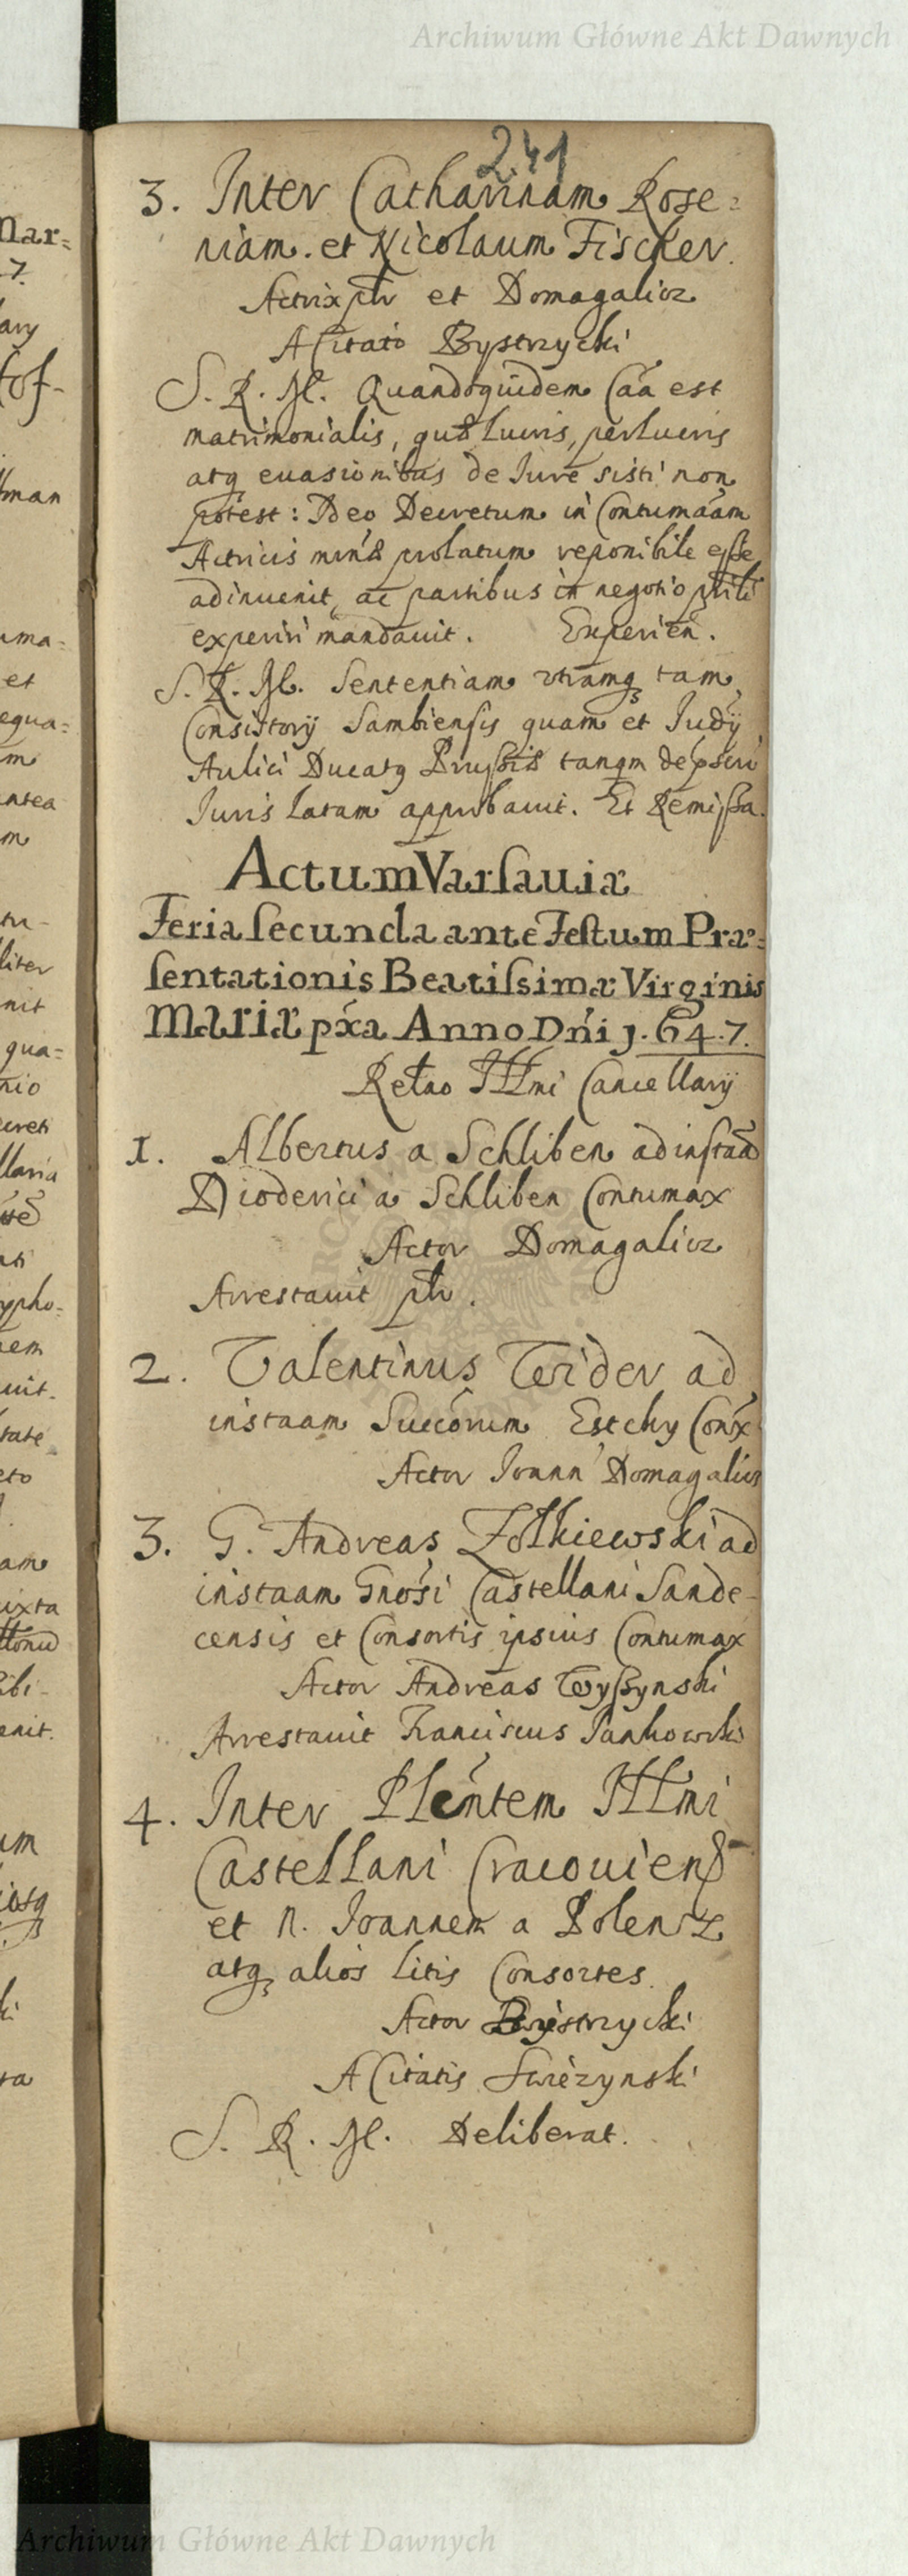 Archiwum Główne Akt Dawnych
241
3. Inter Catharinam Rose=
niam. et Nicolaum Fischer.
Actrix ptr et Domagalicz
A Citato Bystrzycki
S. R. M. Quandoquidem Caa est
matrimonialis, luvis, perluvis
atq evasionibus de Iure sisti non
potest: Ideo Decretum in Contumaam
Actricis prolatum reponibile esse
adinuenit, ac partibus in negotio pnti
experiri mandauit. Experien.
S. R. M. Sententiam vtramq tam
Consistorij Sambiensis quam et Judij
Aulici Ducatq Prussiæ tanqm
Iuris latam approbauit. Et Remissa.
Actum Varsauiæ
Feria secunda ante Festum Præ=
sentationis Beatissimæ Virginis
Mariæ pxa Anno Dni 1.647.
Retao Illmi Cancellarij
1. Albertus a Schliben ad instaa
Dioderici a Schliben Contumax
Actor Domagalicz
Arrestauit ptr.
2. Valentinus Weider ad
instaam Estchy Conx
Actor Ioann Domagalicz
3. G. Andreas Zolkiewski ad
instaam Gnosi Castellani Sande-
censis et Consortis ipsius Contumax
Actor Andreas Wyssynski
Arrestauit Franciscus Jankowski
4. Inter Plentem Illmi
Castellani Cracouiens
et N. Joannem a Polentz
atq alios litis Consortes.
Actor Bystrzycki
A Citatis Swiezynski
S. R. M. Deliberat.
Archiwum Główne Akt Dawnych